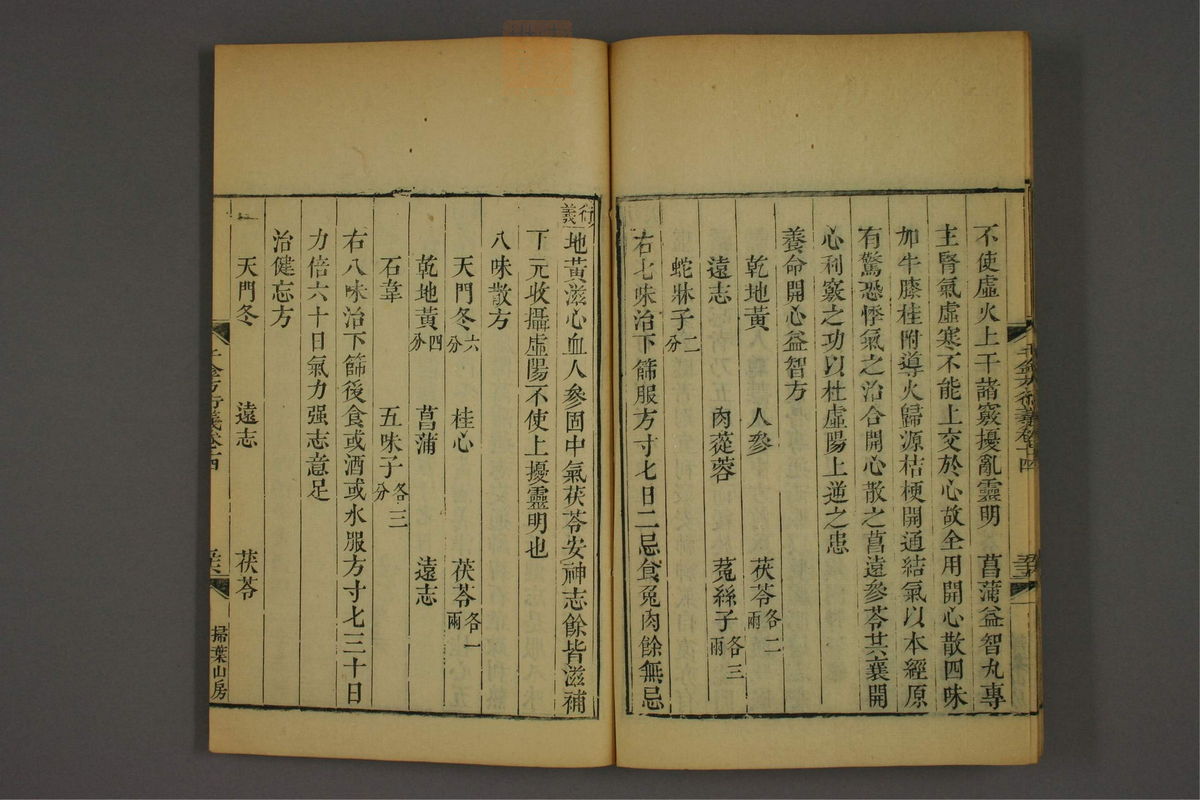 不使虛火上干諸竅擾亂靈明　菖蒲益智丸專
主腎氣虛寒不能上交於心故全用開心散四味
加牛膝桂附導火歸源桔梗開通結氣以本經原
有驚恐悸氣之治合開心散之菖遠參苓共襄開
心利竅之功以杜虛陽上逆之患
養命開心益智方
乾地黃　人參　茯苓各二兩
遠志　肉蓯蓉　菟絲子各三兩
蛇牀子二分
右七味治下篩服方寸七日二忌食兔肉餘無忌
千金方衍義卷十四
衍義地黃滋心血人參固中氣茯苓安神志餘皆滋補
下元收攝虛陽不使上擾靈明也
八味散方
天門冬六分　桂心　茯苓各一兩
乾地黃四分　菖蒲　遠志
石韋　五味子各三分
右八味治下篩後食或酒或水服方寸七三十日
力倍六十日氣力强志意足
治健忘方
天門冬　遠志　茯苓
千金方衍義卷十四　掃葉山房